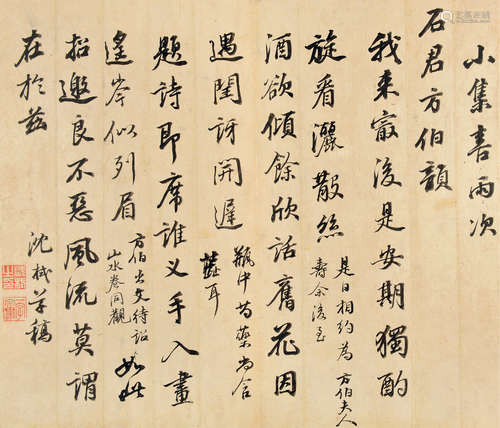 小集喜雨次
石君方伯韻
我來甯後是安期獨酌
旋看灑散絲
是日相約為方伯夫人
壽余後至
酒欲傾餘欣話舊花因
遇閏訝開遲
瓶中芍藥尚含
蕊耳
題詩即席誰叉手入畫
遥岑似列眉
方伯出文待詔
山水卷同觀
如此
招邀良不惡風流莫謂
在於兹
沈栻草稿